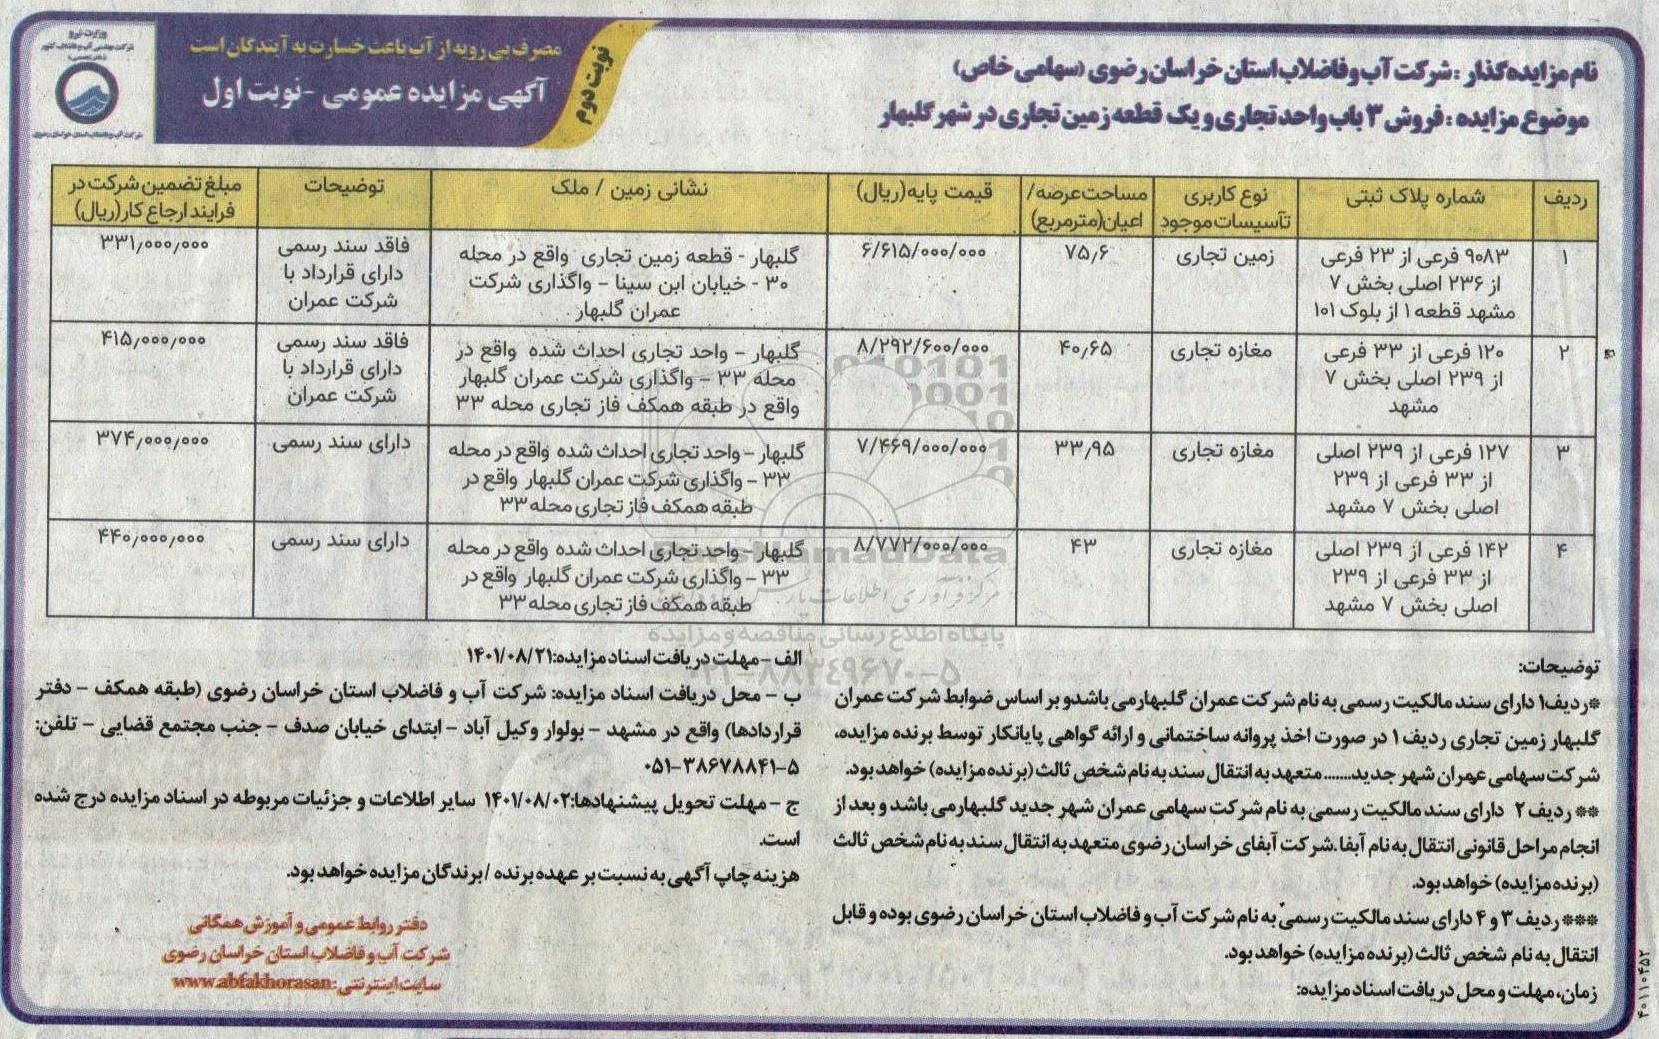 وزارت نیرو
شرکت مهندسی آب و فاضلاب کشور
شرکت آب و فاضلاب استان خراسان رضوی
مصرف بی رویه از آب باعث خسارت به آیندگان است
آگهی مزایده عمومی - نوبت اول
نوبت دوم
نام مزایده گذار : شرکت آب و فاضلاب استان خراسان رضوی (سهامی خاص)
موضوع مزایده : فروش ۳ باب واحد تجاری و یک قطعه زمین تجاری در شهر گلبهار
ردیف | شماره پلاک ثبتی | نوع کاربری تأسیسات موجود | مساحت عرصه/ اعیان(مترمربع) | قیمت پایه(ریال) | نشانی زمین / ملک | توضیحات | مبلغ تضمین شرکت در فرایند ارجاع کار(ریال)
۱ | ۹۰۸۳ فرعی از ۲۳ فرعی از ۲۳۶ اصلی بخش ۷ مشهد قطعه ۱ از بلوک ۱۰۱ | زمین تجاری | ۷۵٫۶ | ۶/۶۱۵/۰۰۰/۰۰۰ | گلبهار - قطعه زمین تجاری واقع در محله ۳۰ - خیابان ابن سینا – واگذاری شرکت عمران گلبهار | فاقد سند رسمی دارای قرارداد با شرکت عمران | ۳۳۱٫۰۰۰٫۰۰۰
۲ | ۱۲۰ فرعی از ۳۳ فرعی از ۲۳۹ اصلی بخش ۷ مشهد | مغازه تجاری | ۴۰٫۶۵ | ۸/۲۹۲/۶۰۰/۰۰۰ | گلبهار – واحد تجاری احداث شده واقع در محله ۳۳ – واگذاری شرکت عمران گلبهار واقع در طبقه همکف فاز تجاری محله ۳۳ | فاقد سند رسمی دارای قرارداد با شرکت عمران | ۴۱۵٫۰۰۰٫۰۰۰
۳ | ۱۲۷ فرعی از ۲۳۹ اصلی از ۳۳ فرعی از ۲۳۹ اصلی بخش ۷ مشهد | مغازه تجاری | ۳۳٫۹۵ | ۷/۴۶۹/۰۰۰/۰۰۰ | گلبهار – واحد تجاری احداث شده واقع در محله ۳۳ – واگذاری شرکت عمران گلبهار واقع در طبقه همکف فاز تجاری محله ۳۳ | دارای سند رسمی | ۳۷۴٫۰۰۰٫۰۰۰
۴ | ۱۴۲ فرعی از ۲۳۹ اصلی از ۳۳ فرعی از ۲۳۹ اصلی بخش ۷ مشهد | مغازه تجاری | ۴۳ | ۸/۷۷۲/۰۰۰/۰۰۰ | گلبهار – واحد تجاری احداث شده واقع در محله ۳۳ – واگذاری شرکت عمران گلبهار واقع در طبقه همکف فاز تجاری محله ۳۳ | دارای سند رسمی | ۴۴۰٫۰۰۰٫۰۰۰
توضیحات:
*ردیف۱ دارای سند مالکیت رسمی به نام شرکت عمران گلبهار می باشد و بر اساس ضوابط شرکت عمران
گلبهار زمین تجاری ردیف ۱ در صورت اخذ پروانه ساختمانی و ارائه گواهی پایانکار توسط برنده مزایده،
شرکت سهامی عمران شهر جدید.......متعهد به انتقال سند به نام شخص ثالث (برنده مزایده) خواهد بود.
** ردیف ۲ دارای سند مالکیت رسمی به نام شرکت سهامی عمران شهر جدید گلبهار می باشد و بعد از
انجام مراحل قانونی انتقال به نام آبفا.شرکت آبفای خراسان رضوی متعهد به انتقال سند به نام شخص ثالث
(برنده مزایده) خواهد بود.
*** ردیف ۳ و ۴ دارای سند مالکیت رسمی به نام شرکت آب و فاضلاب استان خراسان رضوی بوده و قابل
انتقال به نام شخص ثالث (برنده مزایده) خواهد بود.
زمان، مهلت و محل دریافت اسناد مزایده:
الف – مهلت دریافت اسناد مزایده:۱۴۰۱/۰۸/۲۱
ب – محل دریافت اسناد مزایده: شرکت آب و فاضلاب استان خراسان رضوی (طبقه همکف – دفتر
قراردادها) واقع در مشهد – بولوار وکیل آباد – ابتدای خیابان صدف – جنب مجتمع قضایی – تلفن:
۰۵۱-۳۸۶۷۸۸۴۱-۵
ج – مهلت تحویل پیشنهادها:۱۴۰۱/۰۸/۰۲ سایر اطلاعات و جزئیات مربوطه در اسناد مزایده درج شده
است.
هزینه چاپ آگهی به نسبت بر عهده برنده /برندگان مزایده خواهد بود.
دفتر روابط عمومی و آموزش همگانی
شرکت آب و فاضلاب استان خراسان رضوی
سایت اینترنتی:www.abfakhorasan
۴۰۱۱۰۴۵۲
ParsNamadData
پایگاه اطلاع رسانی مناقصه و مزایده
۰۲۱-۸۸۳۴۹۶۷۰-۵